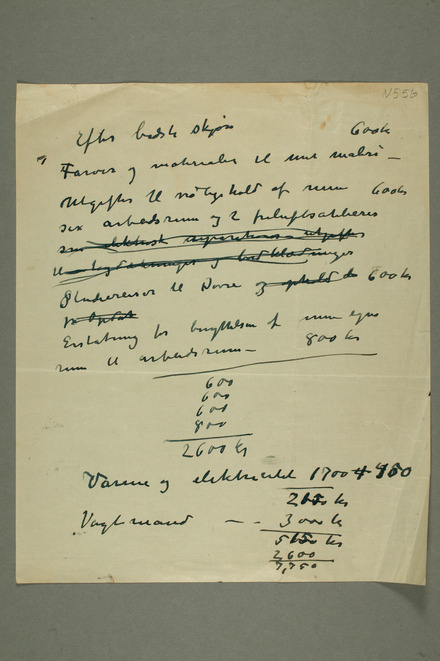 N 556
Efter bedste skjøn
600 kr
Farver og materialer til mit maleri –
Utgifter til vedligehold af mine 600 kr
sex arbeidsrum og 2 friluftsatelierer
og
Studiereiser til Dovre og ophold 600 kr
Erstatning for benyttelsen af mine egne
rum til arbeidsrum – 800 kr
600
600
600
800
2600 kr
Varme og elektricitet 1700 + 450
2150 kr
Vagtmand – – 3000 kr
5150 kr
2,600
7,750